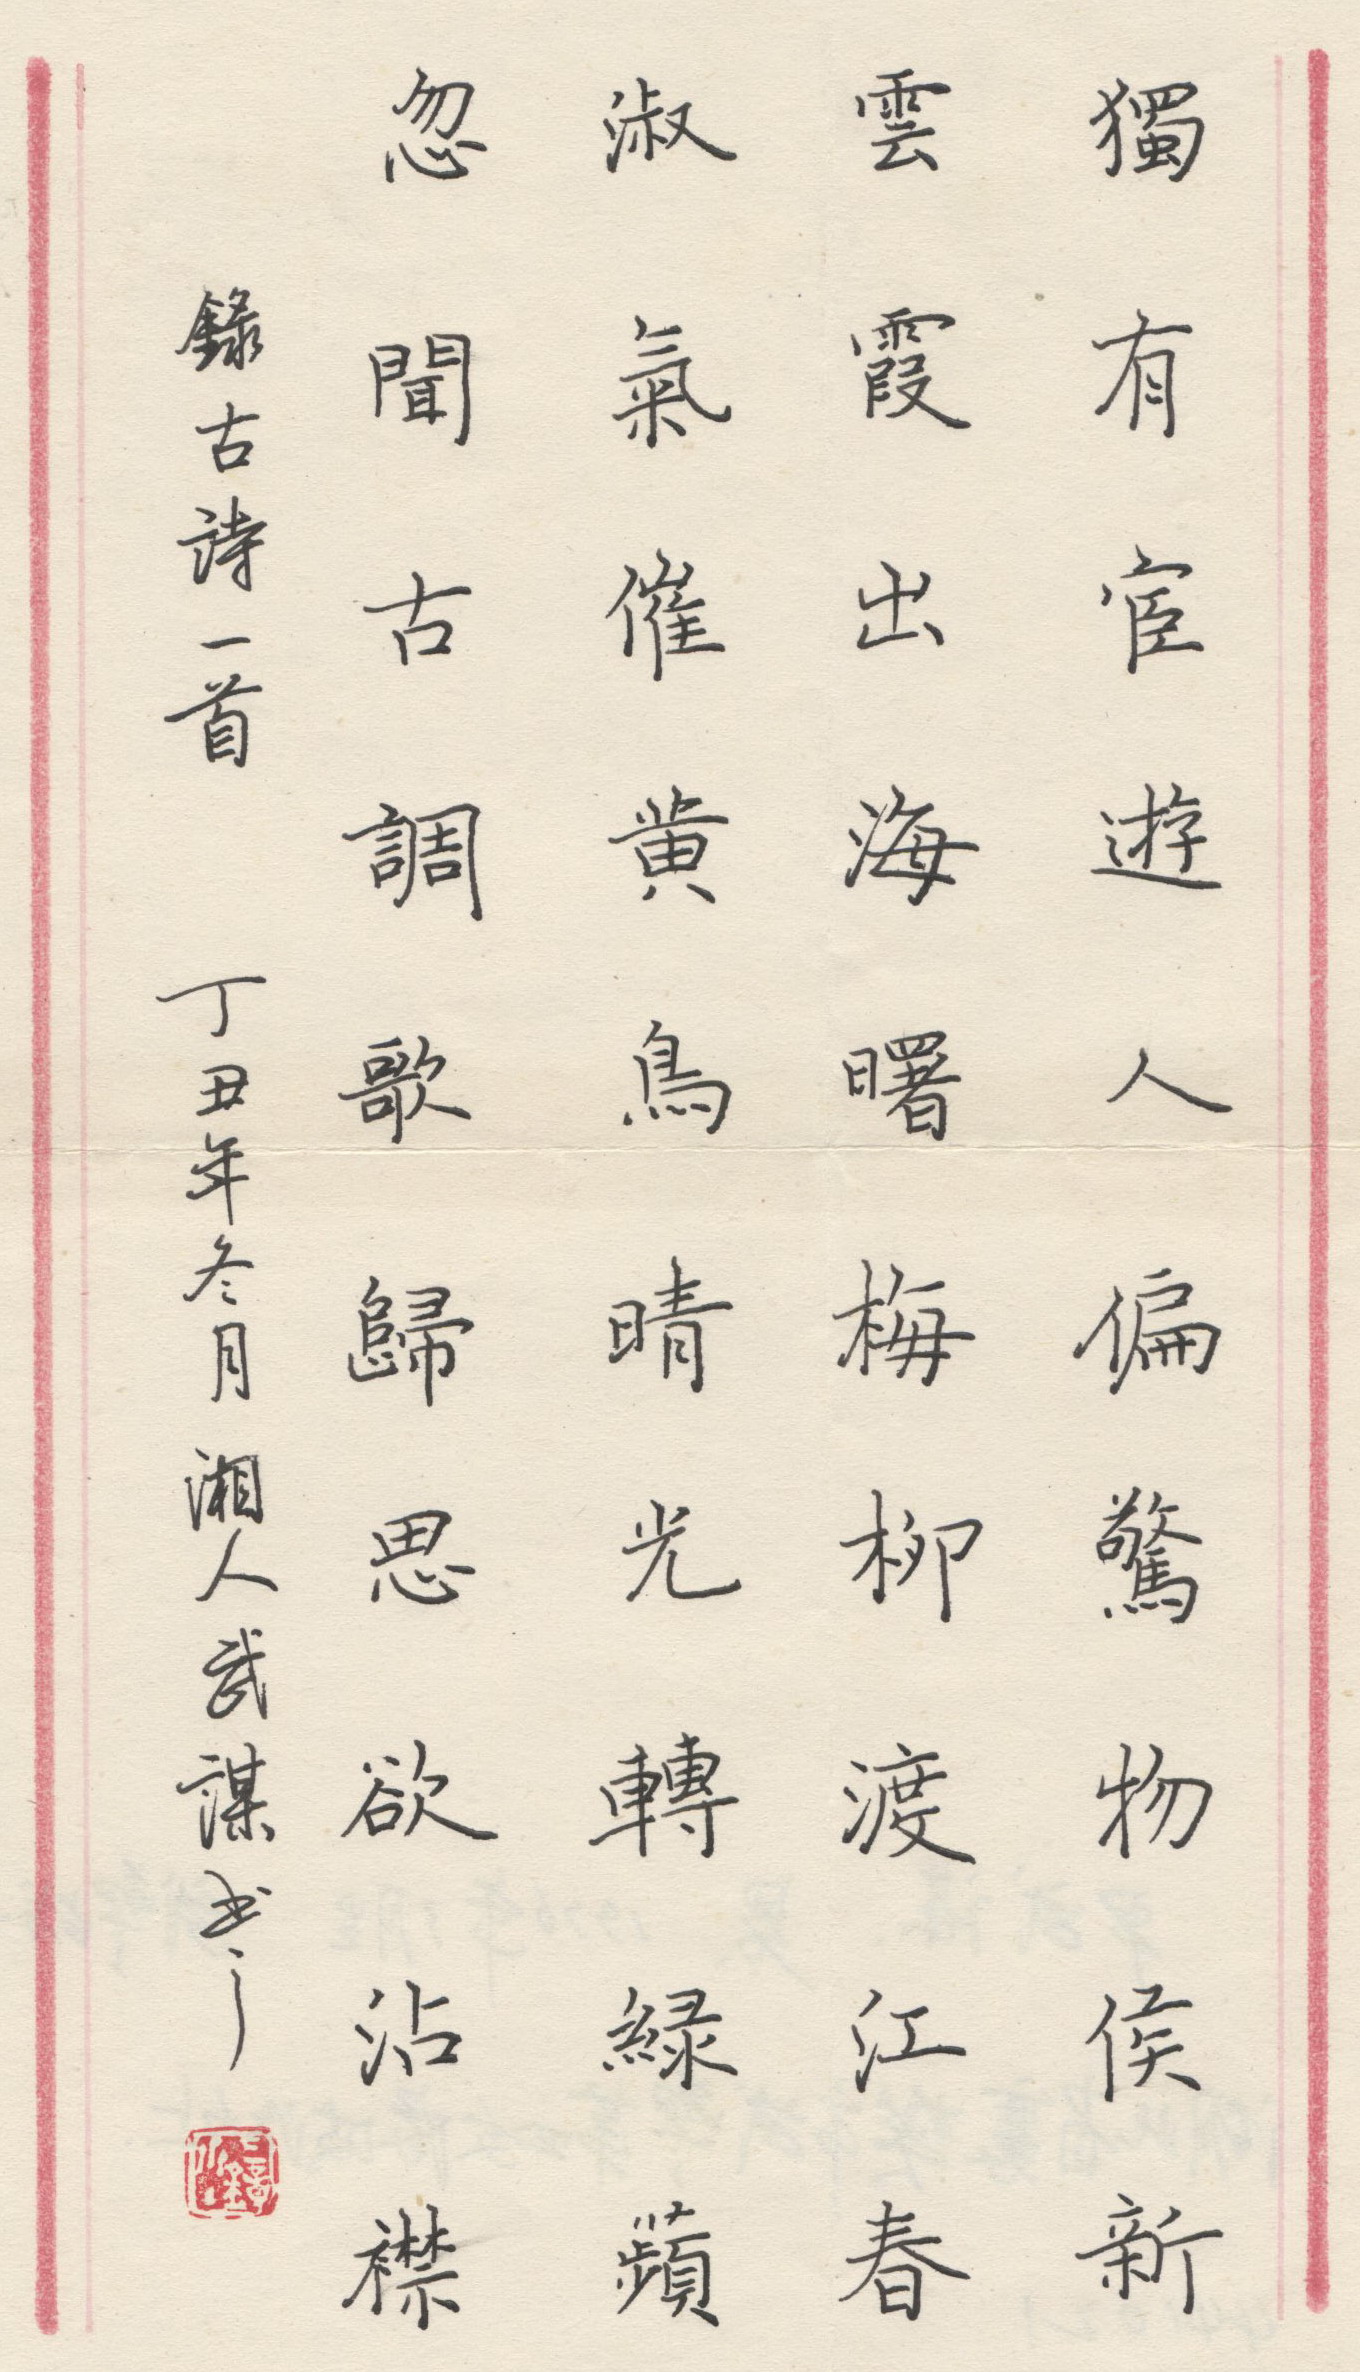 獨有宦遊人偏驚物候新
雲霞出海曙梅柳渡江春
淑氣催黄鳥晴光轉緑蘋
忽聞古調歌歸思欲沾襟
錄古詩一首 丁丑年冬月湘人武謀书